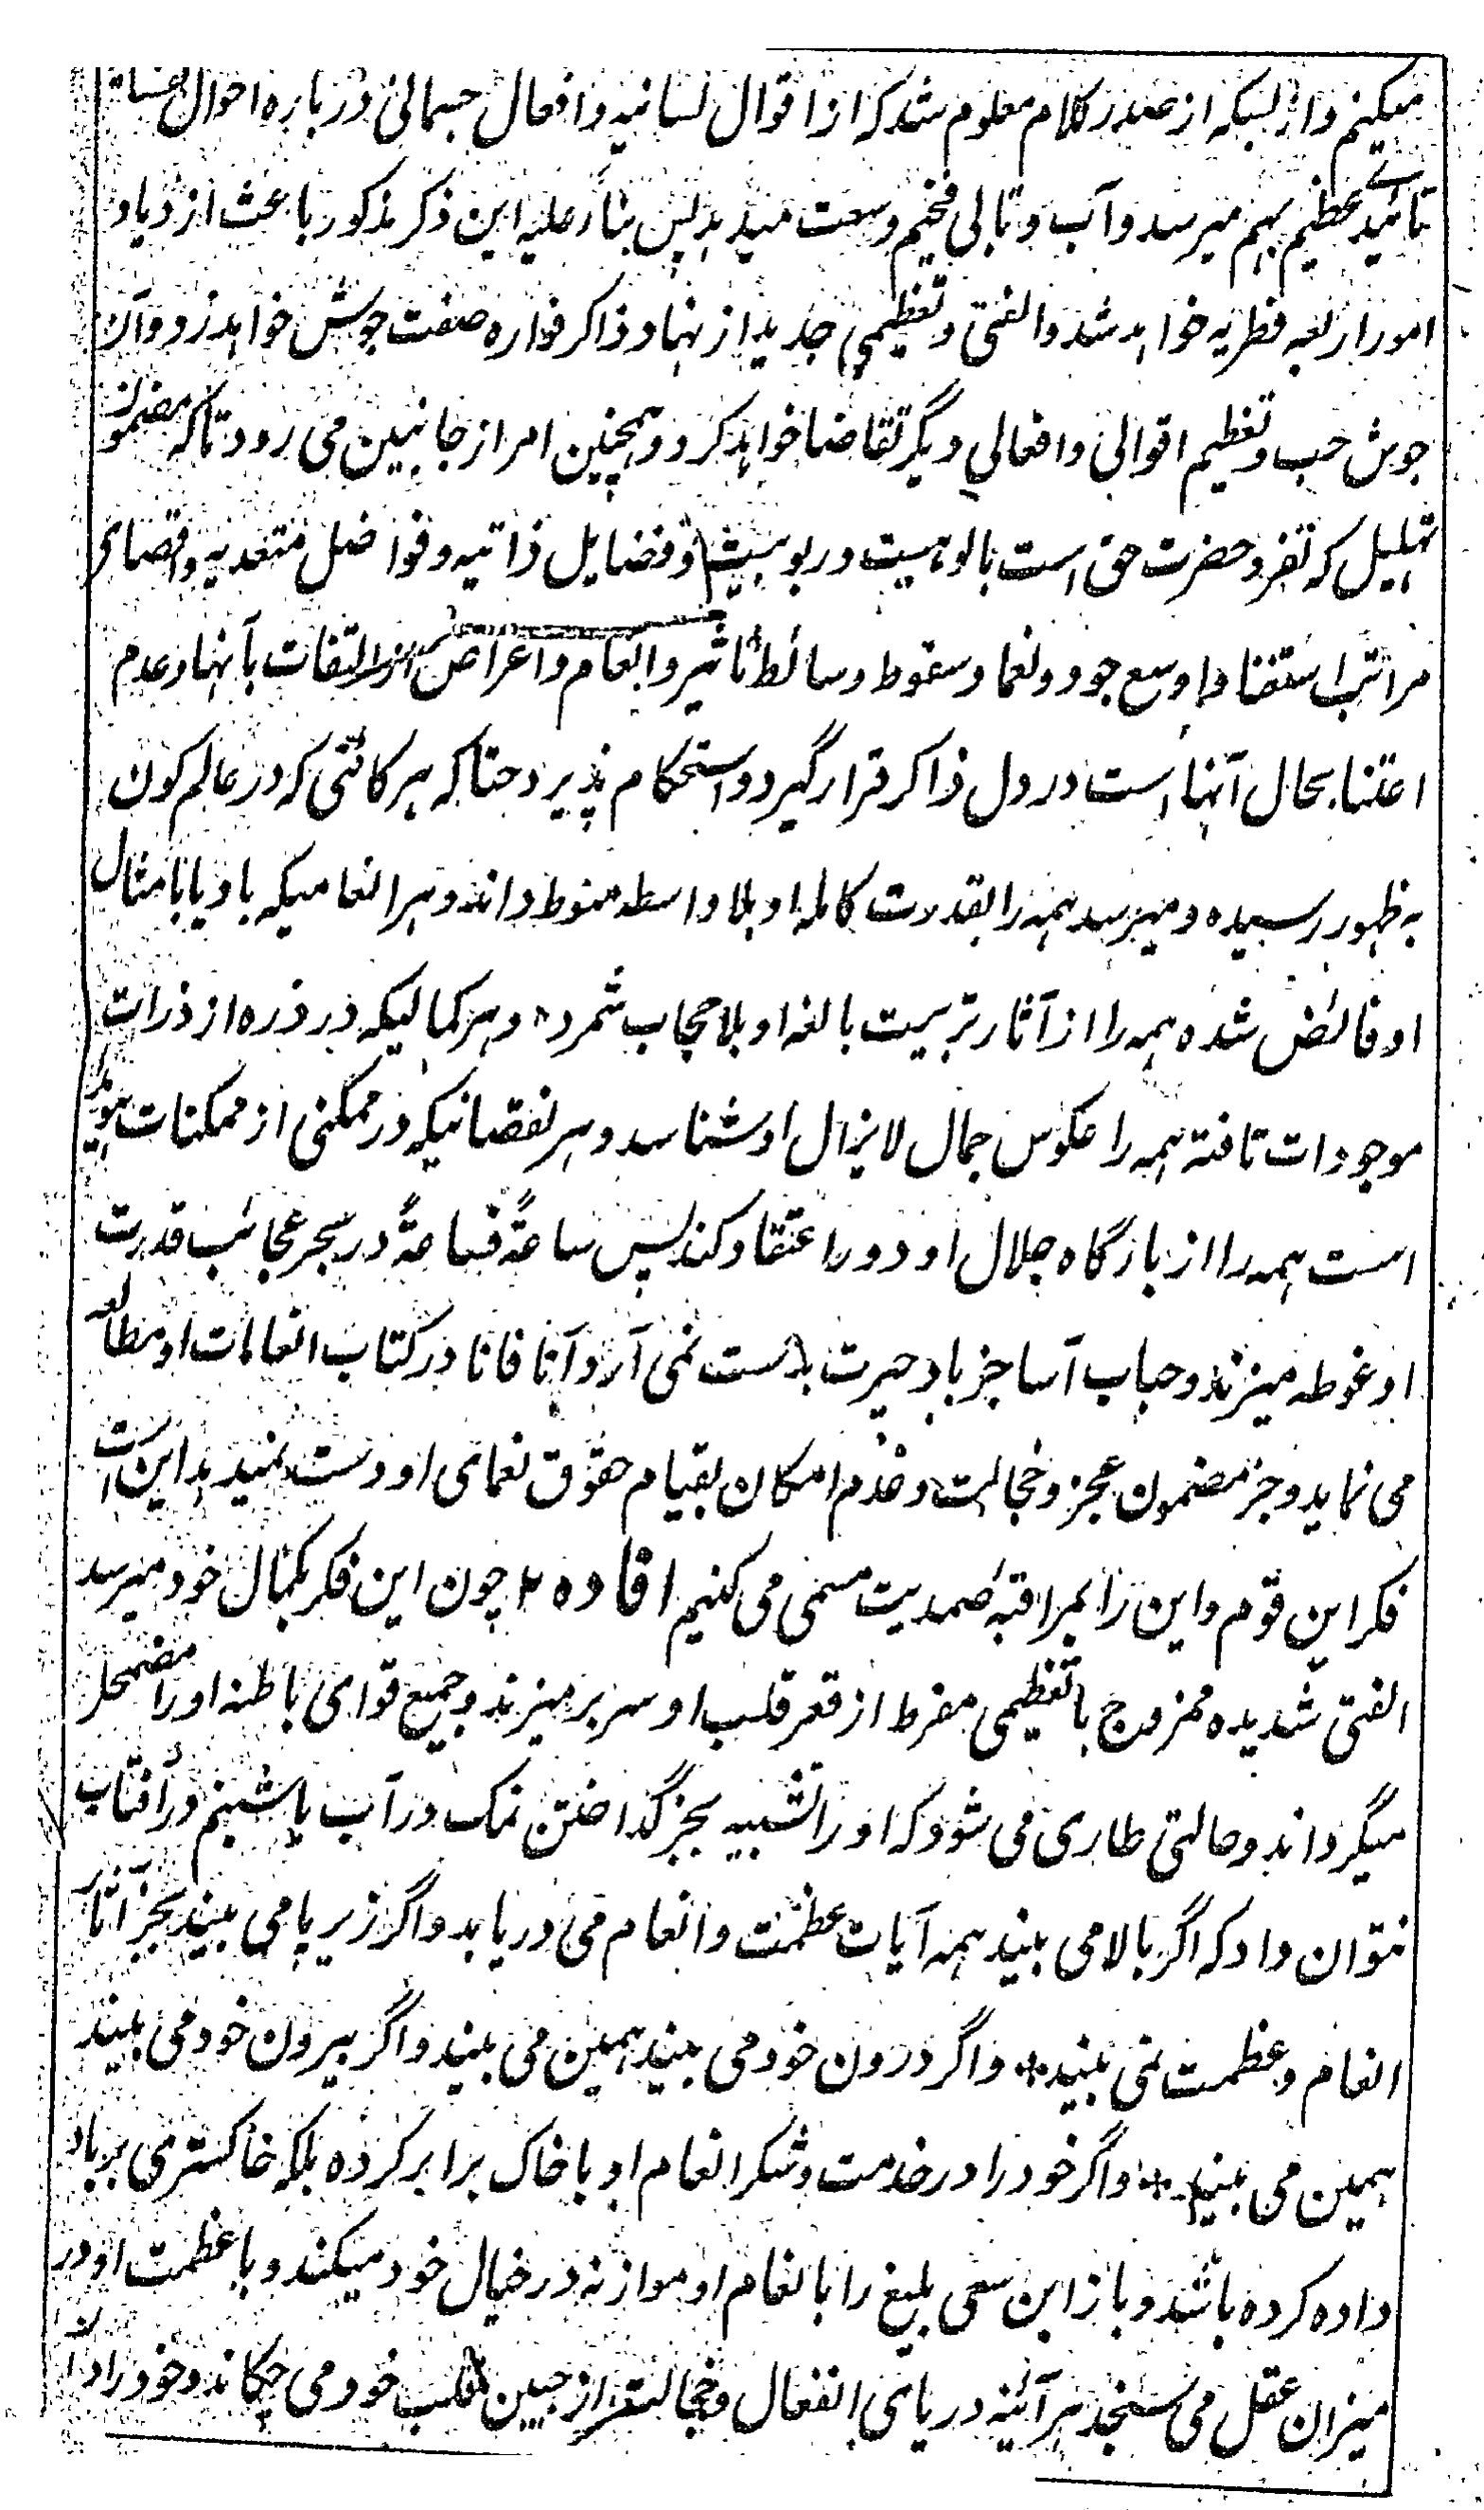 میکنم و از بسکه از صدر کلام معلوم شد که از اقوال لسانیه و افعال جسمانی در باره احوال
تائیدے عظیم بهم میرسد و آب و تابی فخیم وسعت میدهد پس بناءً علیه این ذکر مذکور باعث ازدیاد
امور اربعه فطریه خواهد شد و الفتی و تعظیمی جدید از نهاد ذاکر فواره صفت جوش خواهد زد و آن
جوش حب و تعظیم اقوالی و افعالی دیگر تقاضا خواهد کرد و همچنین امر از جانبین می رود تا که مضمون
تهلیل که تفرد حضرت حق است بالوهیت و ربوبیت و فضایل ذاتیه و فواضل متعدیه و اقصای
مراتب استغنا و اوسع جود و نعما و سقوط وسائط تاثیر و انعام و اعراض از التفات بآنها و عدم
اعتنا بحال آنها است در دل ذاکر قرار گیرد و استحکام پذیرد حتا که هر کائنی که در عالم کون
به ظهور رسیده و میرسد همه را بقدرت کامله او بلا واسطه منوط داند و هر انعامیکه باو یا بامثال
او فائض شده همه را از آثار تربیت بالغه او بلا حجاب شمرد و هر کمالیکه در ذره از ذرات
موجودات تافته همه را عکوس جمال لایزال او شناسد و هر نقصانیکه در ممکنی از ممکنات هویدا
است همه را از بارگاه جلال او دور اعتقاد کند پس ساعةً فساعةً در بحر عجائب قدرت
او غوطه میزند و حباب آسا جز باد حیرت بدست نمی آرد و آنا فانا در کتاب انعامات او مطالعه
می نماید و جز مضمون عجز و خجالت و عدم امکان بقیام حقوق نعمای او دست نمیدهد این است
فکر این قوم و این را بمراقبهٔ صمدیت مسمی می کنیم افاده ۲ چون این فکر بکمال خود میرسد
الفتی شدیده ممزوج با تعظیمی مفرط از قعر قلب او سر بر میزند و جمیع قوای باطنه او را مضمحل
میگرداند و حالتی طاری می شود که او را تشبیه بجز گداختن نمک در آب یا شبنم در آفتاب
نتوان داد که اگر بالا می بیند همه آیات عظمت و انعام می دریابد و اگر زیر پا می بیند بجز آثار
انعام و عظمت نمی بیند * و اگر درون خود می بیند همین می بیند و اگر بیرون خود می بیند
همین می بیند * و اگر خود را در خدمت و شکر انعام او با خاک برابر کرده بلکه خاکستری بر باد
داده کرده باشد و باز این سعی بلیغ را با انعام او موازنه در خیال خود میکند و با عظمت او در
میزان عقل می سنجد هر آئینه دریای انفعال و خجالت از جبین قلب خود می چکاند و خود را